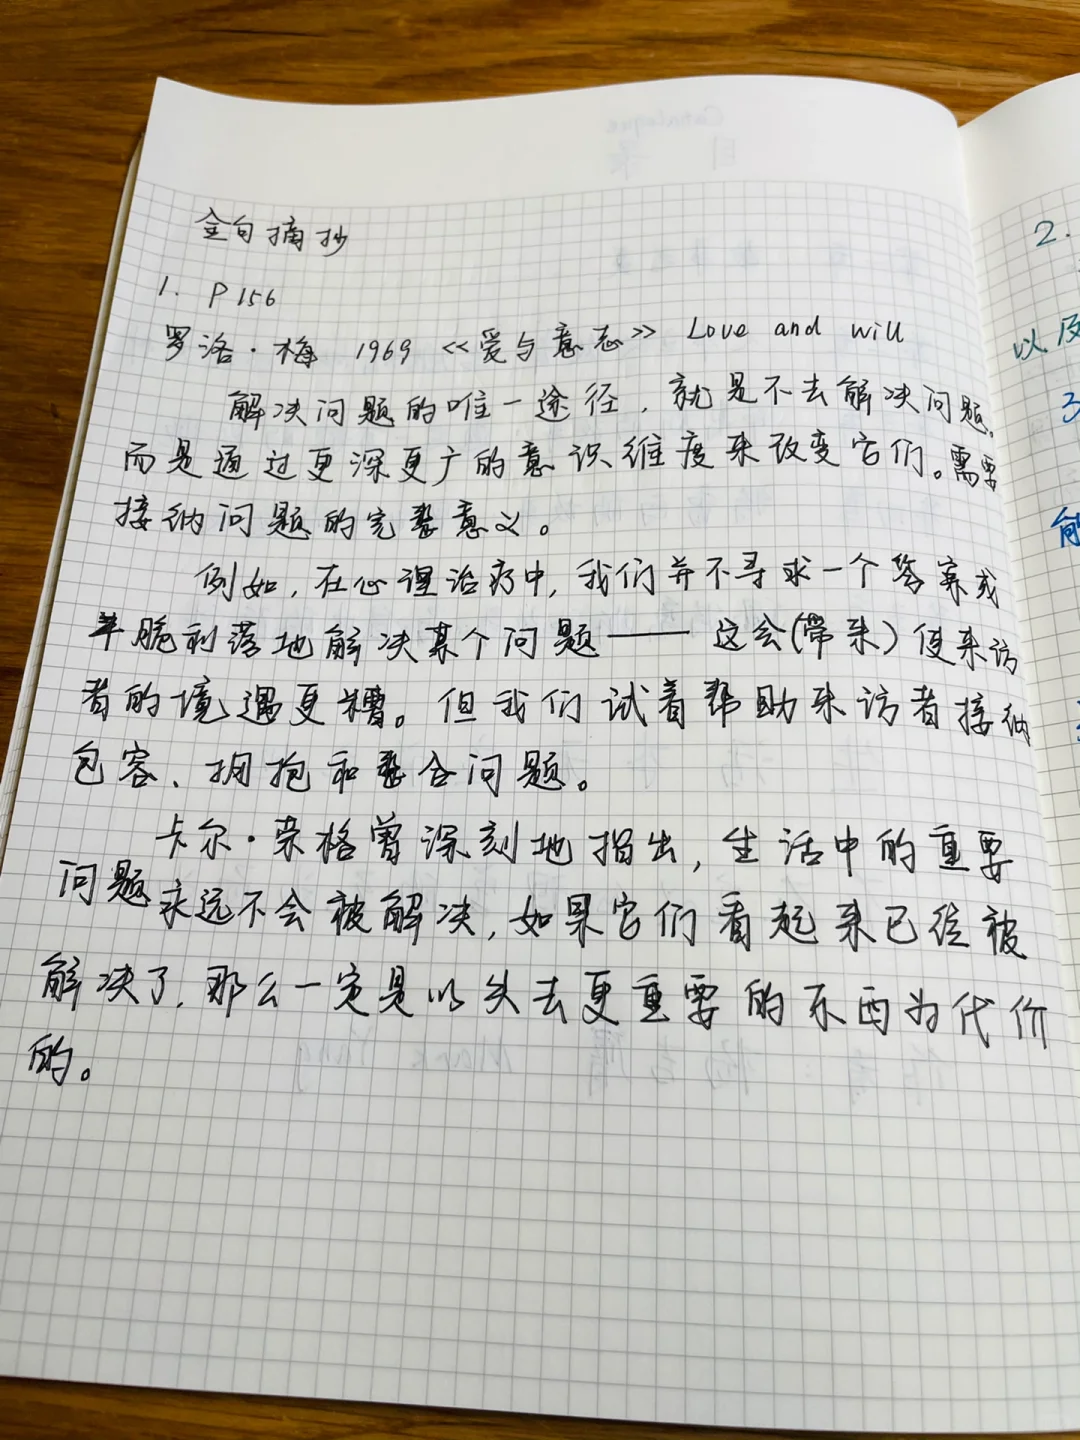 金句摘抄
1. P156
罗洛·梅 1969 《爱与意志》 Love and will
解决问题的唯一途径，就是不去解决问题，
而是通过更深更广的意识维度来改变它们。需要
接纳问题的完整意义。
例如，在心理治疗中，我们并不寻求一个答案或
羊脆利落地解决某个问题——这会(带来)使来访
者的境遇更糟。但我们试着帮助来访者接纳
包容、拥抱和整合问题。
卡尔·荣格曾深刻地指出，生活中的重要
问题永远不会被解决，如果它们看起来已经被
解决了，那么一定是以失去更重要的东西为代价
的。
2.
以及
3
能